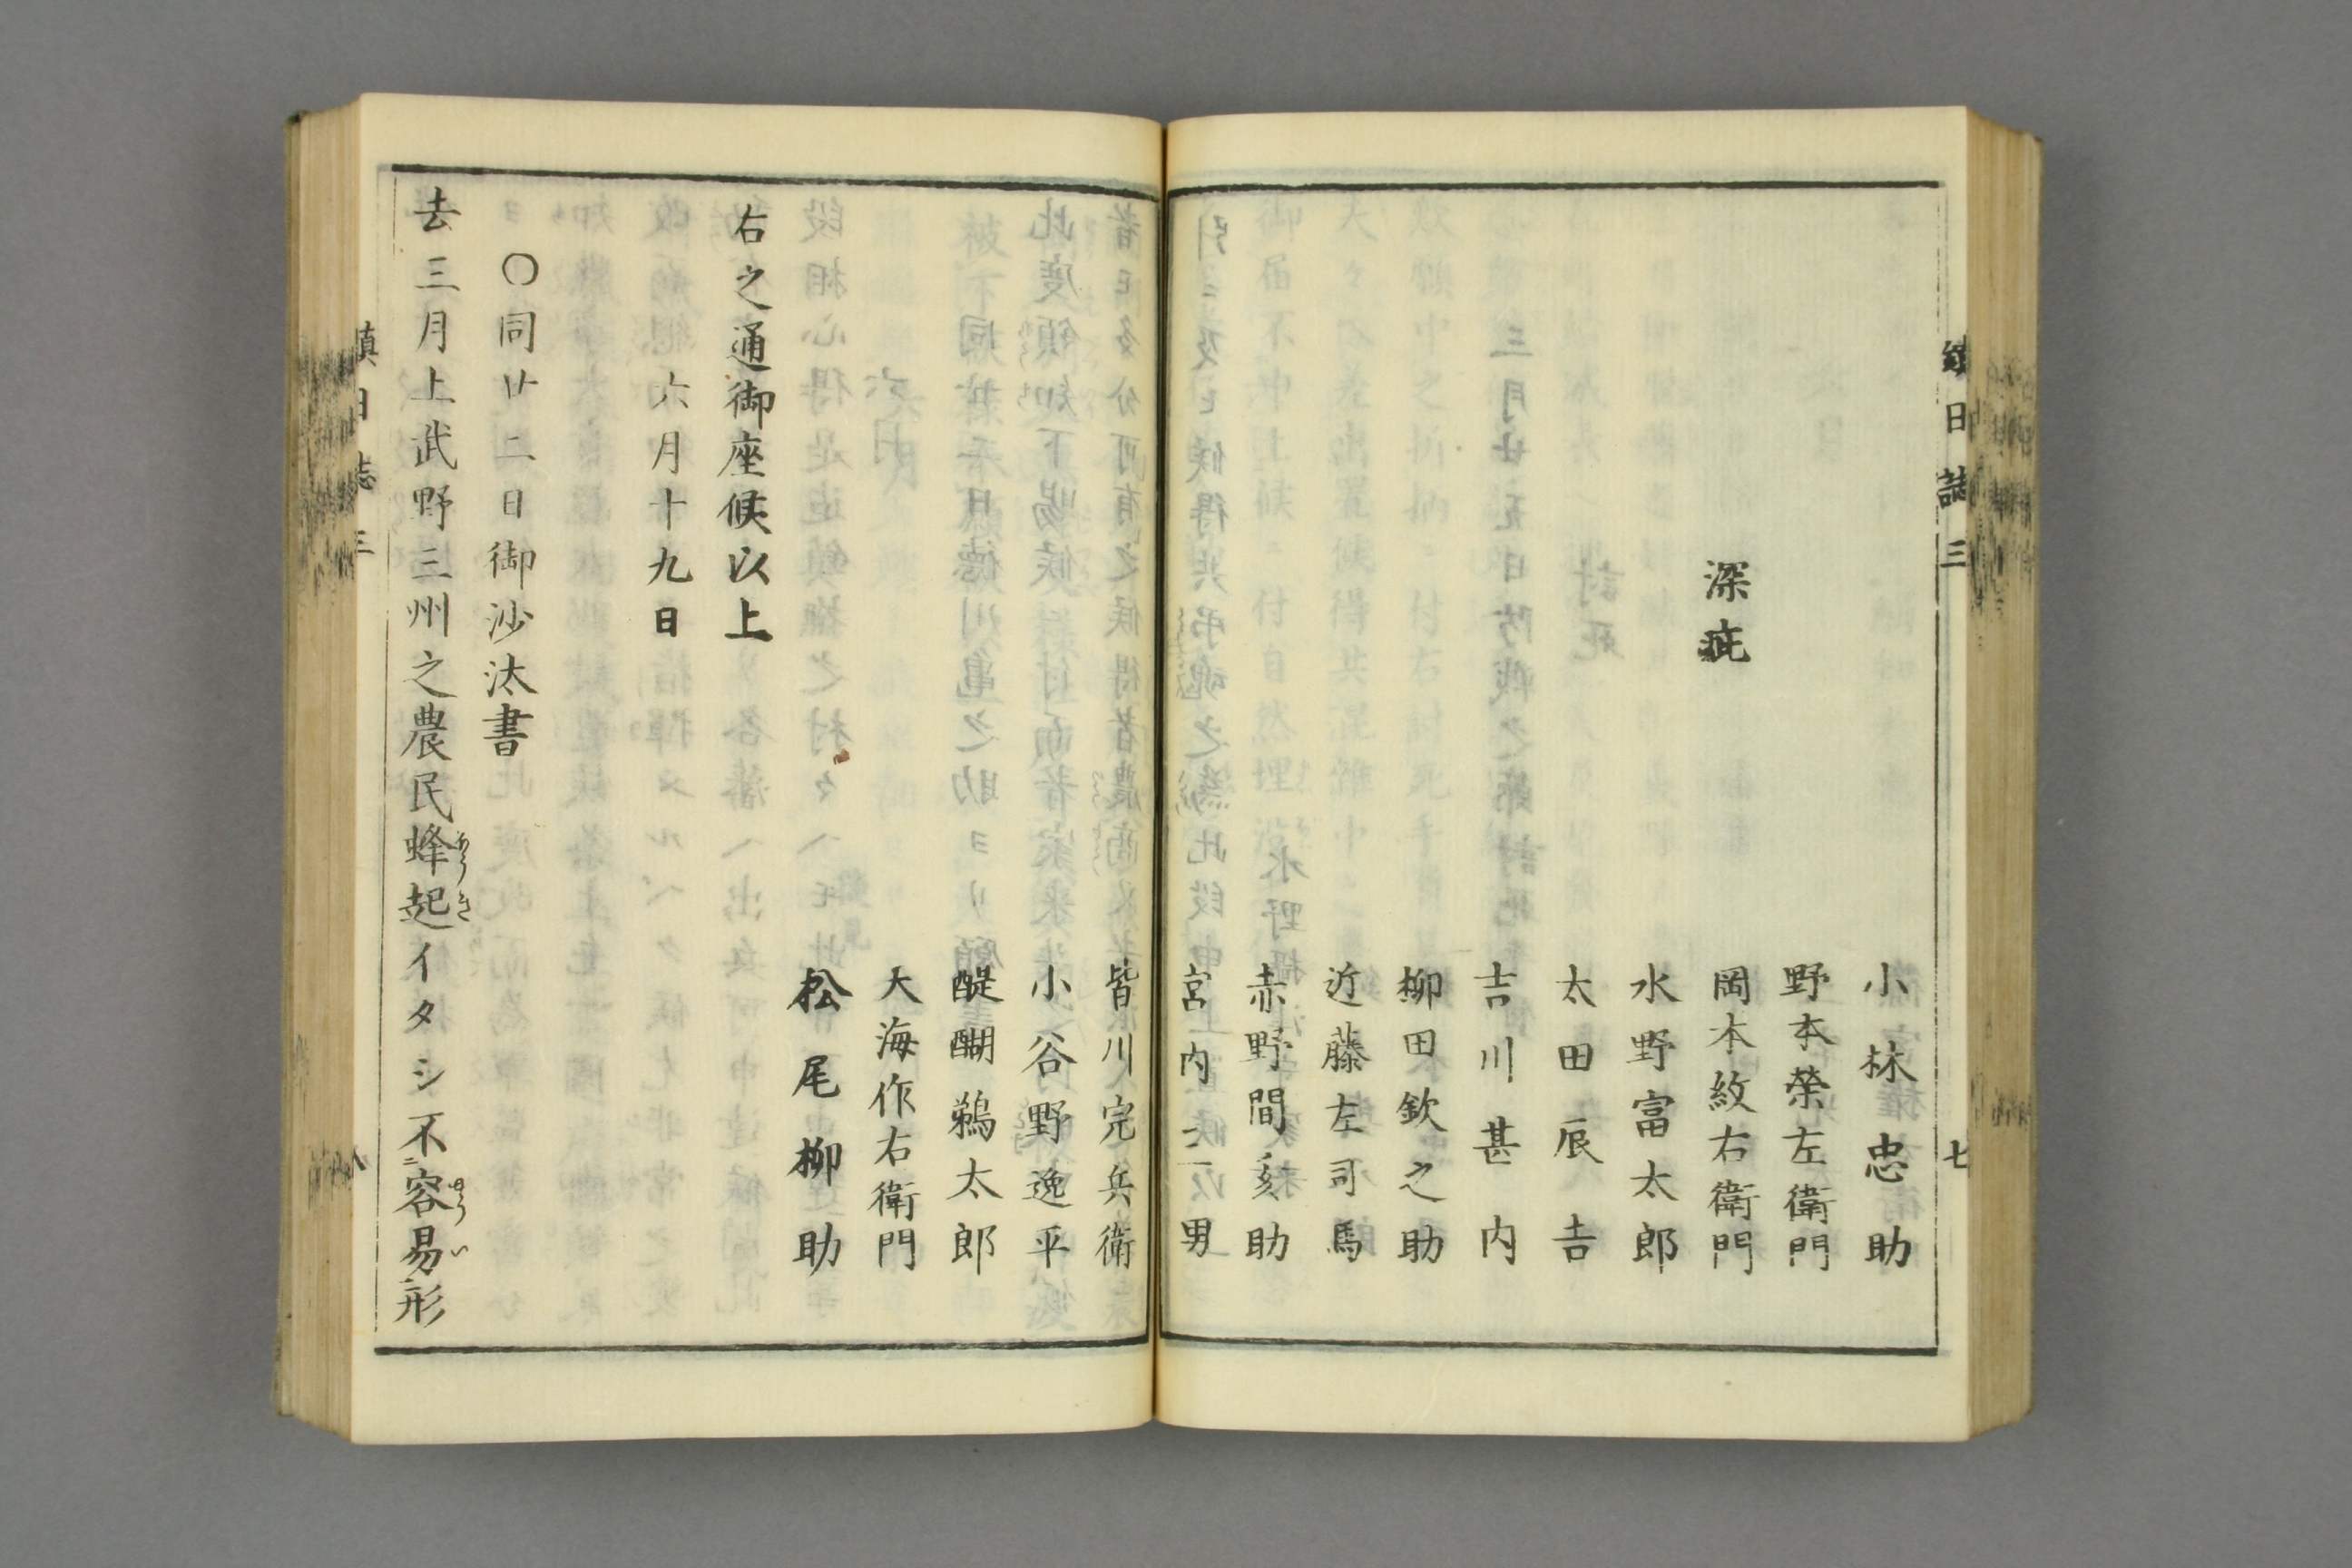 小林忠助
野本榮左衛門
深疵
岡本紋右衛門
水野富太郎
太田辰吉
吉川甚内
柳田欽之助
近藤左司馬
赤野間亥助
宮内一男
皆川完兵衛
小谷野逸平
醍醐鵜太郎
大海作右衛門
松尾柳助
右之通御座候以上
六月十九日
〇同廿二日御沙汰書
去三月上武野三州之農民蜂起イタシ不容易形
日誌三
七
日誌三
八